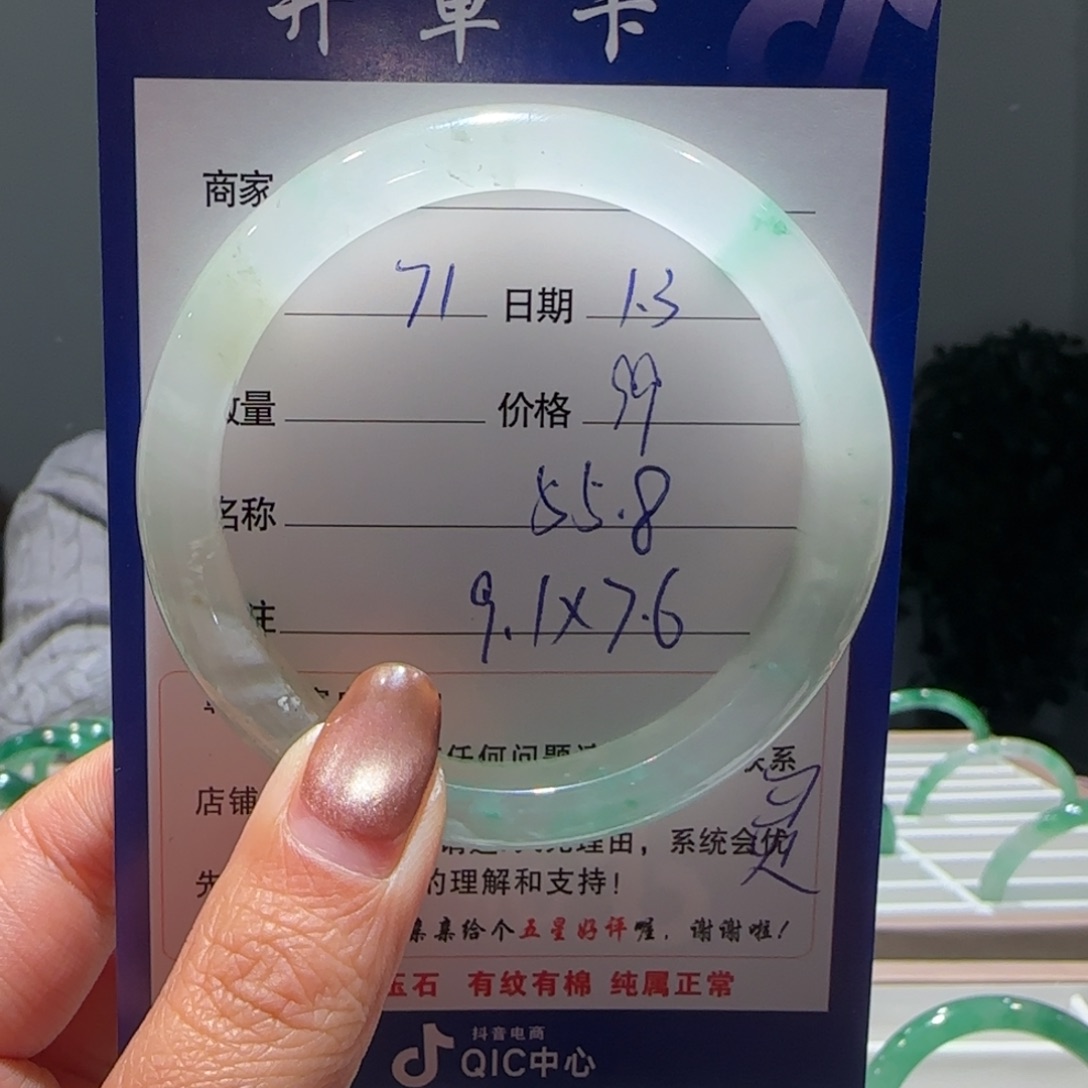 开单卡
商家
71 日期 1.3
数量 价格 99
名称 55.8
注 9.1×7.6
任何问题 联系
店铺 理由，系统会优
先 的理解和支持！
集集给个五星好评喔，谢谢啦！
玉石 有纹有棉 纯属正常
抖音电商
QIC中心